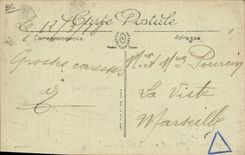 BC
Carte Postale
Le
Correspondance
Adresse
Mr et Mme Pourcin
Grosses caresses
La Viste
Marseille